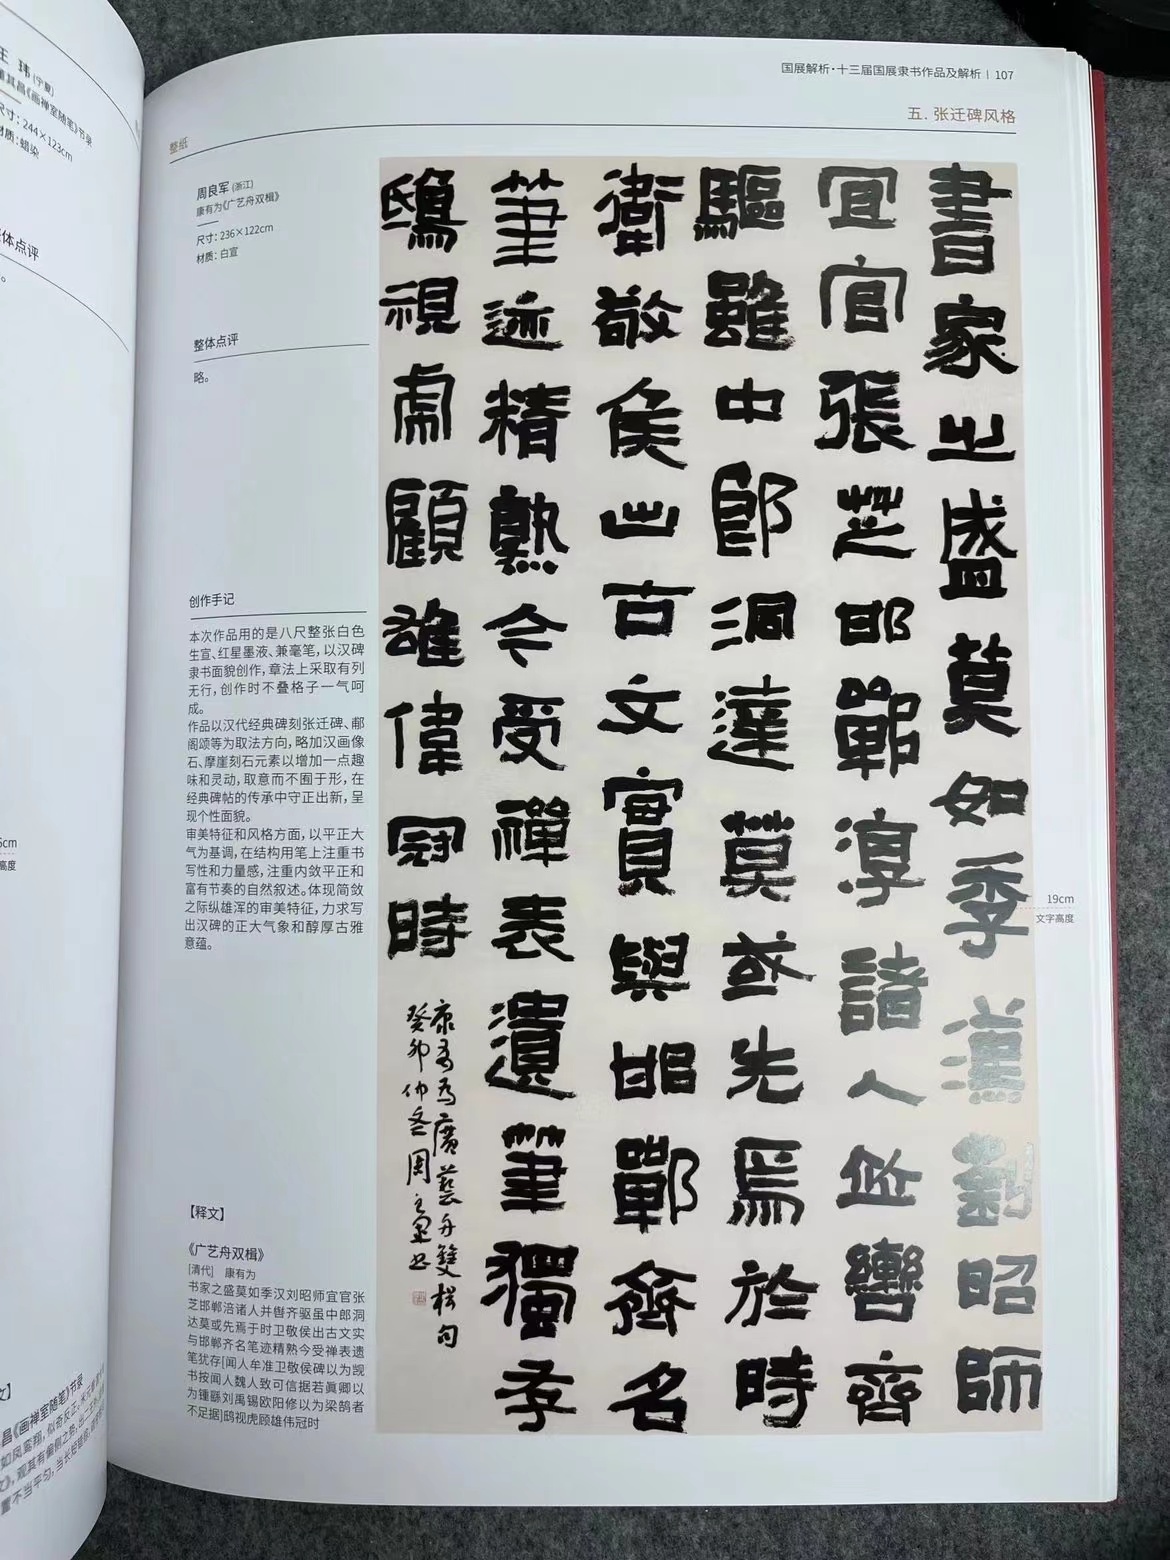 王 玮(宁夏)
董其昌《画禅室随笔》节录
尺寸：244×123cm
材质：蜡染
整体点评
国展解析·十三届国展隶书作品及解析 | 107
五. 张迁碑风格
整纸
周良军(浙江)
康有为《广艺舟双楫》
尺寸：236×122cm
材质：白宣
整体点评
略。
创作手记
本次作品用的是八尺整张白色
生宣、红星墨液、兼毫笔，以汉碑
隶书面貌创作，章法上采取有列
无行，创作时不叠格子一气呵
成。
作品以汉代经典碑刻张迁碑、郙
阁颂等为取法方向，略加汉画像
石、摩崖刻石元素以增加一点趣
味和灵动，取意而不囿于形，在
经典碑帖的传承中守正出新，呈
现个性面貌。
审美特征和风格方面，以平正大
气为基调，在结构用笔上注重书
写性和力量感，注重内敛平正和
富有节奏的自然叙述。体现简敛
之际纵雄浑的审美特征，力求写
出汉碑的正大气象和醇厚古雅
意蕴。
【释文】
《广艺舟双楫》
[清代] 康有为
书家之盛莫如季汉刘昭师宜官张
芝邯郸涪诸人并辔齐驱虽中郎洞
达莫或先焉于时卫敬侯出古文实
与邯郸齐名笔迹精熟今受禅表遗
笔犹存[闻人牟准卫敬侯碑以为觊
书按闻人魏人致可信据若眞卿以
为锺繇刘禹锡欧阳修以为梁鹄者
不足据]鸱视虎顾雄伟冠时
書家之盛莫如季漢劉昭師
宜官張芝邯鄲淳諸人並轡齊
驅雖中郎洞達莫或先焉於時
衛敬侯出古文實與邯鄲齊名
筆迹精熟今受禪表遺筆獨存
鴟視虎顧雄偉冠時
康有為廣藝舟雙楫句
癸卯仲冬周良軍书
19cm
文字高度